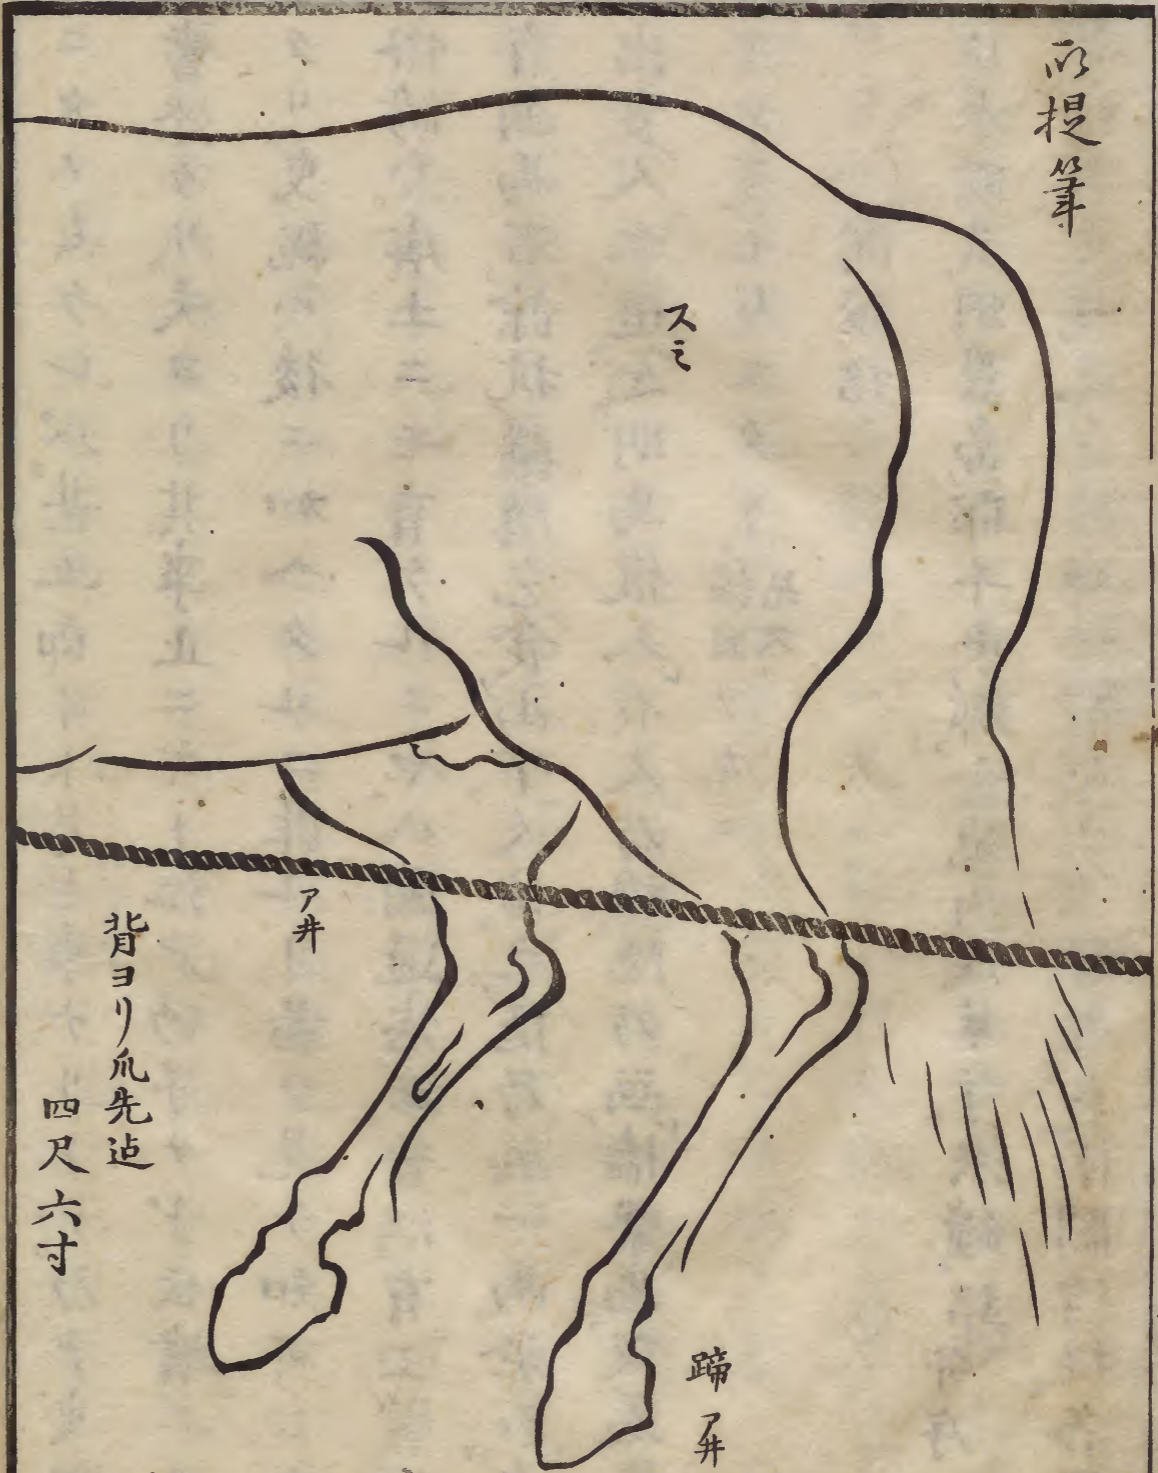 所提筆
スミ
ア井
背ヨリ爪先迠
四尺六寸
蹄ア井